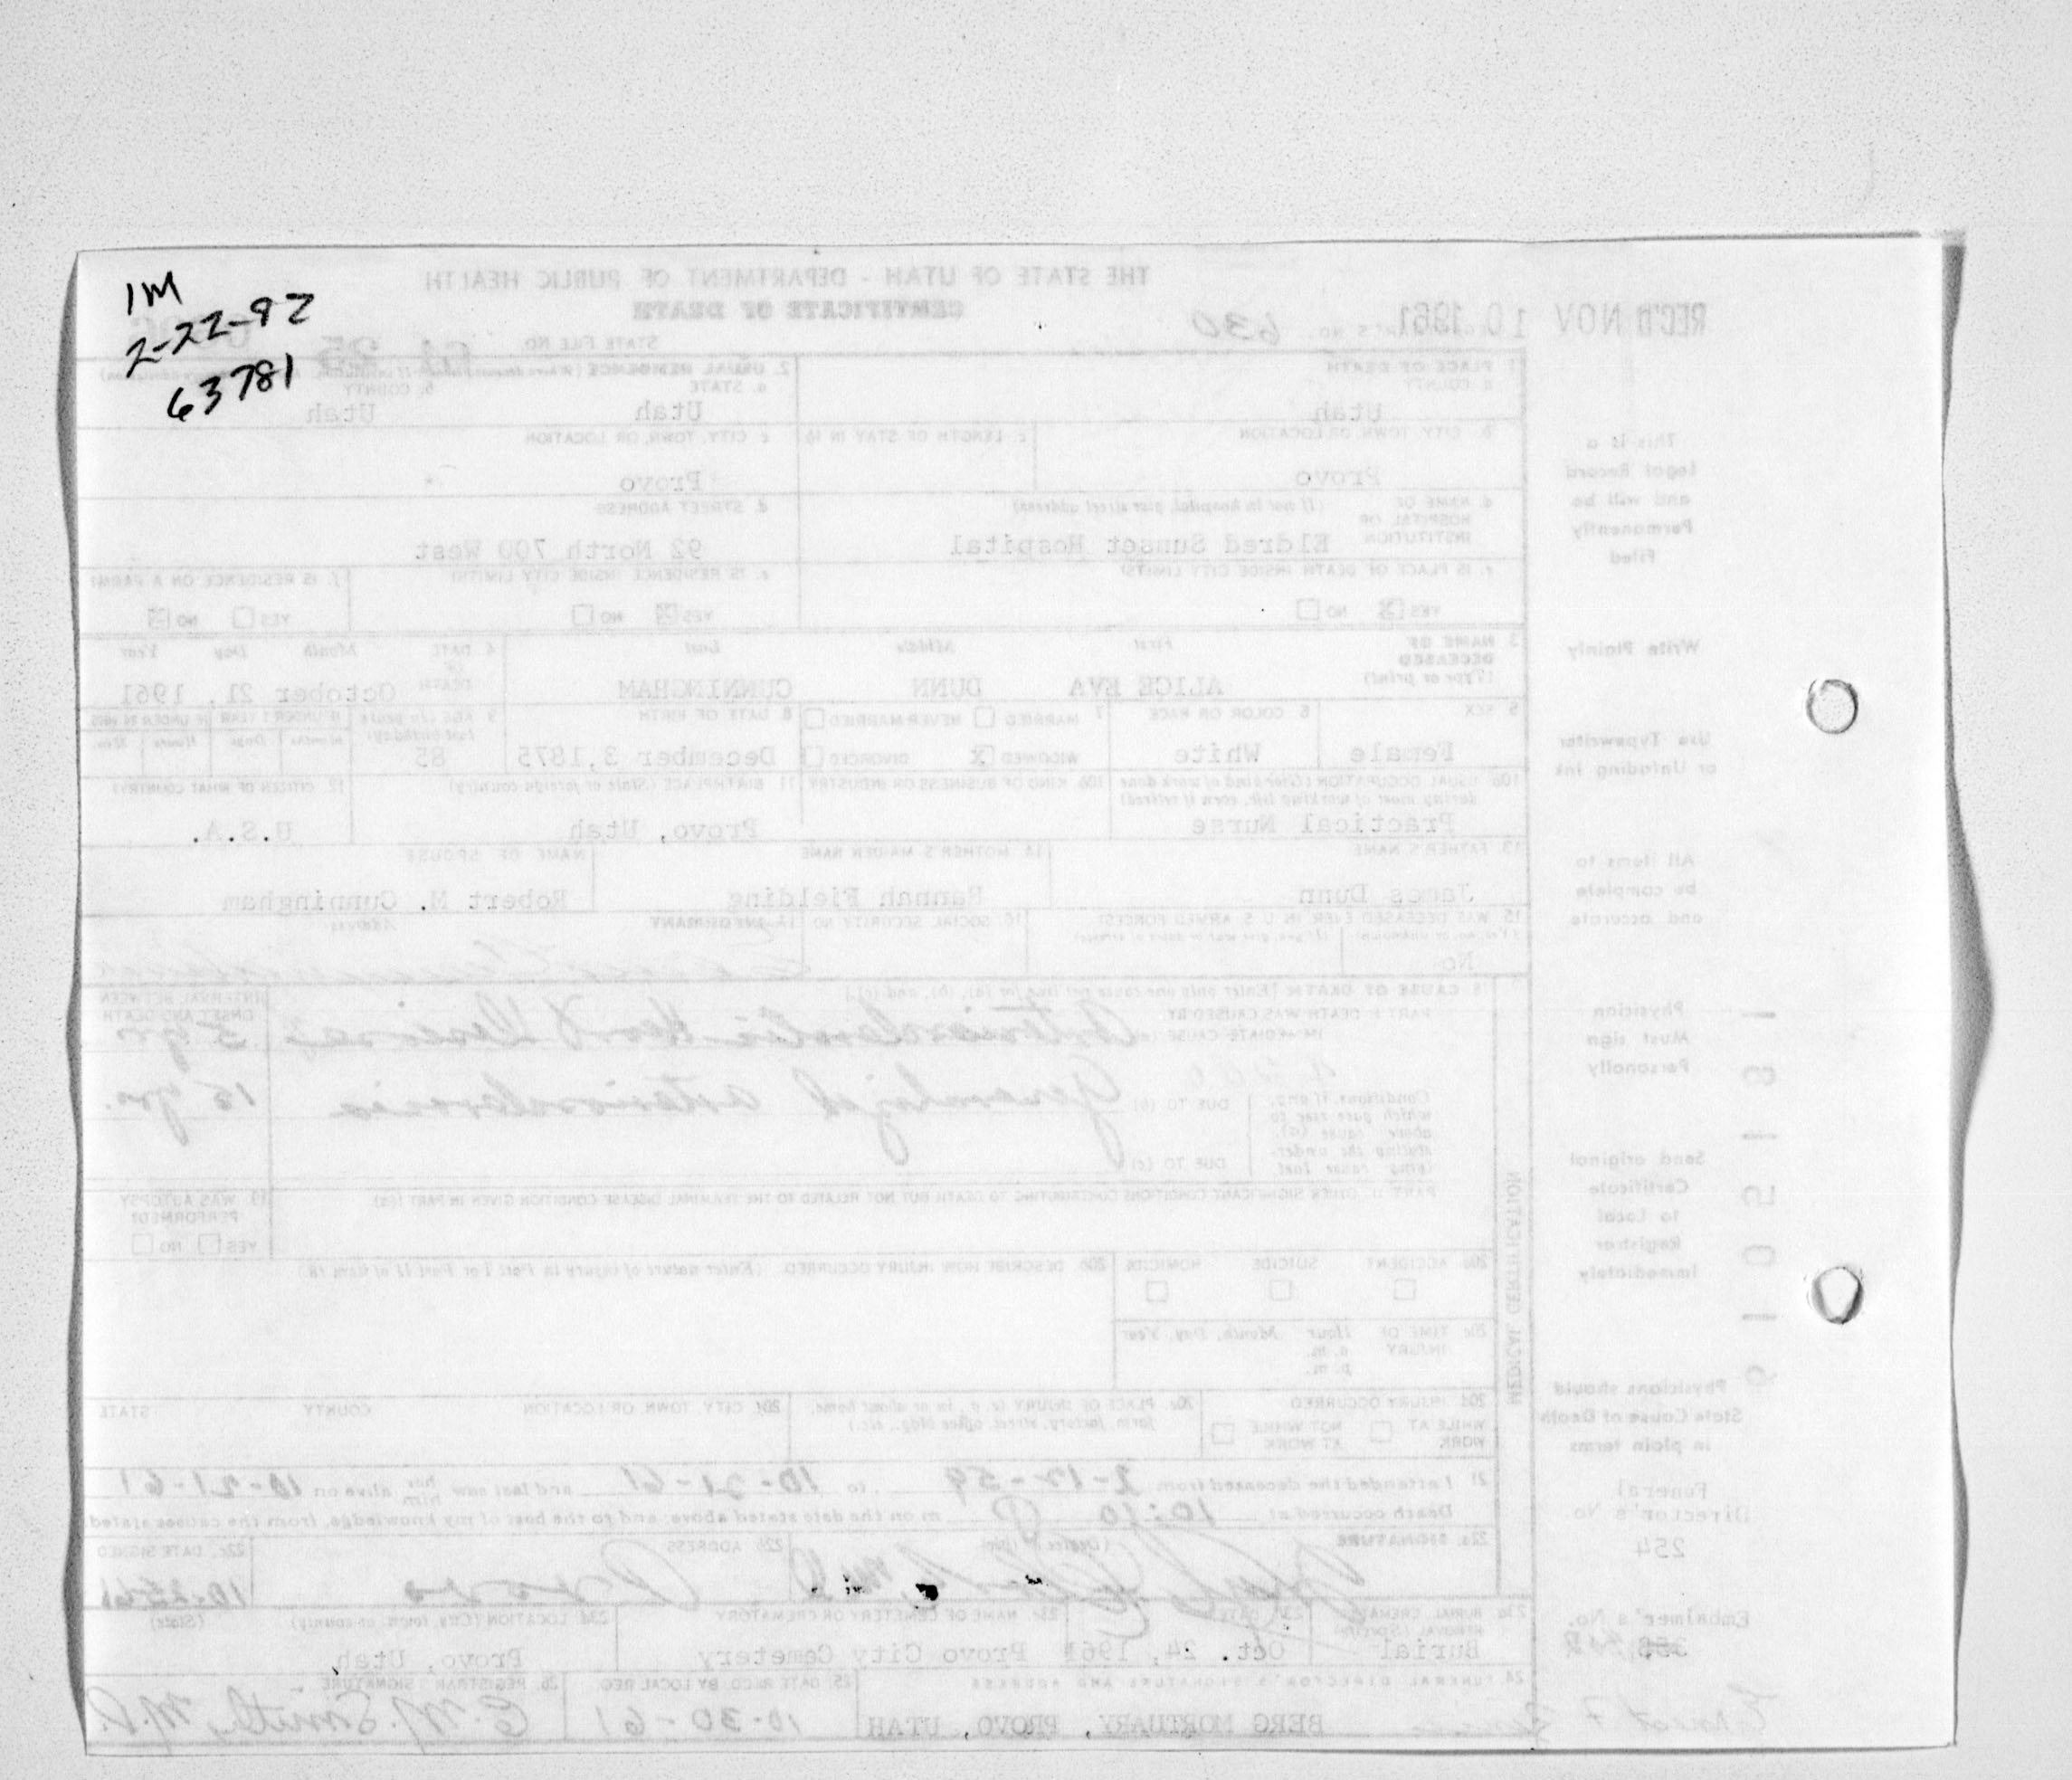 1M
2-22-92
63781
THE STATE OF UTAH - DEPARTMENT OF PUBLIC HEALTH
CERTIFICATE OF DEATH
REC'D NOV 10 1961
REGISTRAR'S NO. 630
STATE FILE NO.
1. PLACE OF DEATH
a. COUNTY
Utah
2. USUAL RESIDENCE
a. STATE
Utah
b. COUNTY
Utah
b. CITY, TOWN, OR LOCATION
Provo
c. LENGTH OF STAY IN 1b
c. CITY, TOWN, OR LOCATION
Provo
d. NAME OF HOSPITAL OR INSTITUTION (If not in hospital, give street address)
Eldred Sunset Hospital
d. STREET ADDRESS
92 North 700 West
e. IS PLACE OF DEATH INSIDE CITY LIMITS?
YES X NO
e. IS RESIDENCE INSIDE CITY LIMITS?
YES X NO
f. IS RESIDENCE ON A FARM?
YES NO
3. NAME OF DECEASED (Type or print)
First Middle Last
ALICE EVA DUNN CUNNINGHAM
4. DATE OF DEATH
Month Day Year
October 21, 1961
5. SEX
Female
6. COLOR OR RACE
White
7. MARRIED NEVER MARRIED
WIDOWED X DIVORCED
8. DATE OF BIRTH
December 3, 1875
9. AGE (In years last birthday)
85
IF UNDER 1 YEAR
Months Days
IF UNDER 24 HRS.
Hours Min.
10a. USUAL OCCUPATION (Give kind of work done during most of working life, even if retired)
Practical Nurse
10b. KIND OF BUSINESS OR INDUSTRY
11. BIRTHPLACE (State or foreign country)
Provo, Utah
12. CITIZEN OF WHAT COUNTRY?
U.S.A.
13. FATHER'S NAME
James Dunn
14. MOTHER'S MAIDEN NAME
Hannah Fielding
NAME OF SPOUSE
Robert M. Cunningham
15. WAS DECEASED EVER IN U. S. ARMED FORCES?
(Yes, no, or unknown) (If yes, give war or dates of service)
No
16. SOCIAL SECURITY NO.
17. INFORMANT
Address
18. CAUSE OF DEATH [Enter only one cause per line for (a), (b), and (c).]
PART I. DEATH WAS CAUSED BY:
IMMEDIATE CAUSE (a)
Heart Disease
INTERVAL BETWEEN ONSET AND DEATH
5 yr
Conditions, if any, which gave rise to above cause (a), stating the under-lying cause last.
DUE TO (b)
15 yr.
DUE TO (c)
PART II. OTHER SIGNIFICANT CONDITIONS CONTRIBUTING TO DEATH BUT NOT RELATED TO THE TERMINAL DISEASE CONDITION GIVEN IN PART I(a)
19. WAS AUTOPSY PERFORMED?
YES NO
20a. ACCIDENT SUICIDE HOMICIDE
20b. DESCRIBE HOW INJURY OCCURRED. (Enter nature of injury in Part I or Part II of item 18.)
20c. TIME OF INJURY Hour Month, Day, Year
a. m.
p. m.
20d. INJURY OCCURRED
WHILE AT WORK NOT WHILE AT WORK
20e. PLACE OF INJURY (e. g., in or about home, farm, factory, street, office bldg., etc.)
20f. CITY, TOWN, OR LOCATION COUNTY STATE
MEDICAL CERTIFICATION
21. I attended the deceased from 2-12-59 to 10-21-61 and last saw her him alive on 10-21-61
Death occurred at 10:10 P m on the date stated above; and to the best of my knowledge, from the causes stated.
22a. SIGNATURE (Degree or title)
M.D.
22b. ADDRESS
Provo
22c. DATE SIGNED
23a. BURIAL, CREMATION, REMOVAL (Specify)
Burial
23b. DATE
Oct. 24, 1961
23c. NAME OF CEMETERY OR CREMATORY
Provo City Cemetery
23d. LOCATION (City, town, or county) (State)
Provo, Utah
24. FUNERAL DIRECTOR'S SIGNATURE AND ADDRESS
BERG MORTUARY, PROVO, UTAH
25. DATE REC'D BY LOCAL REG.
10-30-61
26. REGISTRAR'S SIGNATURE
C. M. Smith, M.D.
This is a
Legal Record
and will be
Permanently
Filed
Write Plainly
Use Typewriter
or Unfading Ink
All items to
be complete
and accurate
Physician
Must sign
Personally
Send original
Certificate
to Local
Registrar
Immediately
Physicians should
State Cause of Death
in plain terms
Funeral
Director's No.
254
Embalmer's No.